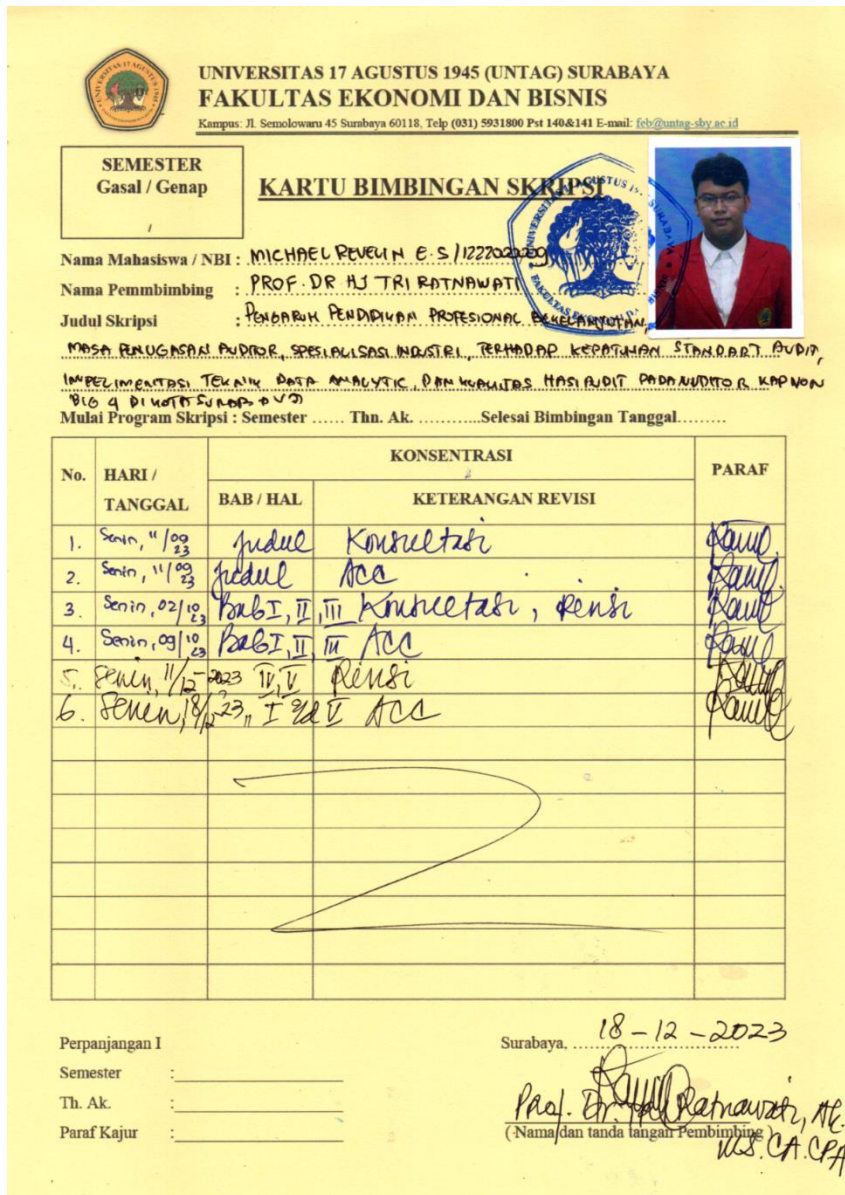 UNIVERSITAS 17 AGUSTUS 1945 (UNTAG) SURABAYA
FAKULTAS EKONOMI DAN BISNIS
Kampus: Jl. Semolowaru 45 Surabaya 60118, Telp (031) 5931800 Pst 140&141 E-mail: feb@untag-sby.ac.id
SEMESTER
Gasal / Genap
/
KARTU BIMBINGAN SKRIPSI
Nama Mahasiswa / NBI : MICHAEL REVELIN E.S /
Nama Pemmbimbing : PROF. DR HJ TRI RATNAWATI
Judul Skripsi : PENGARUH PENDIDIKAN PROFESIONAL BERKELANJUTAN,
MASA PENUGASAN AUDITOR, SPESIALISASI INDUSTRI, TERHADAP KEPATUHAN STANDART AUDIT,
IMPELIMENTASI TEKNIK DATA ANALYTIC, DAN KUALITAS HASI AUDIT PADA AUDITOR KAP NON
BIG 4 DI KOTA SURABAYA
Mulai Program Skripsi : Semester ...... Thn. Ak. ...........Selesai Bimbingan Tanggal.........
No. HARI / TANGGAL KONSENTRASI PARAF
BAB / HAL KETERANGAN REVISI
1. Senin, 11/09 23 Judul Konsultasi
2. Senin, 11/09 23 Judul ACC
3. Senin, 02/10 23 Bab I, II, III Konsultasi, Revisi
4. Senin, 09/10 23 Bab I, II, III ACC
5. Senin, 11/12-2023 IV, V Revisi
6. Senin, 18/12-23 I s/d V ACC
Perpanjangan I
Semester :
Th. Ak. :
Paraf Kajur :
Surabaya, 18-12-2023
Prof. Dr. Ratnawati, Ak.
(Nama/dan tanda tangan Pembimbing)
M.S. CA. CPA